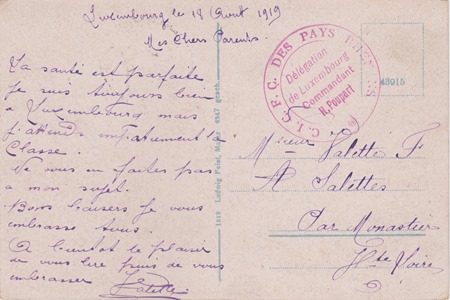 Luxembourg le 18 Avril 1919
Mes Chers Parents.
La santé est parfaite
Je suis toujours bien
à Luxembourg mais
j'attends impatiemment la
Classe.
Ne vous en faites pas
à mon sujet.
Bons baisers Je vous
embrasse tous.
A bientôt le plaisir
de vous lire puis de vous
embrasser
Valette
1518 Ludwig Feist, Mainz 4347 gesch.
C.I.C.F.C. DES PAYS RHENANS
Délégation
de Luxembourg
Commandant
H. Poupart
43915
Msieur Valette F
A Salettes
Par Monastier
Hte Loire